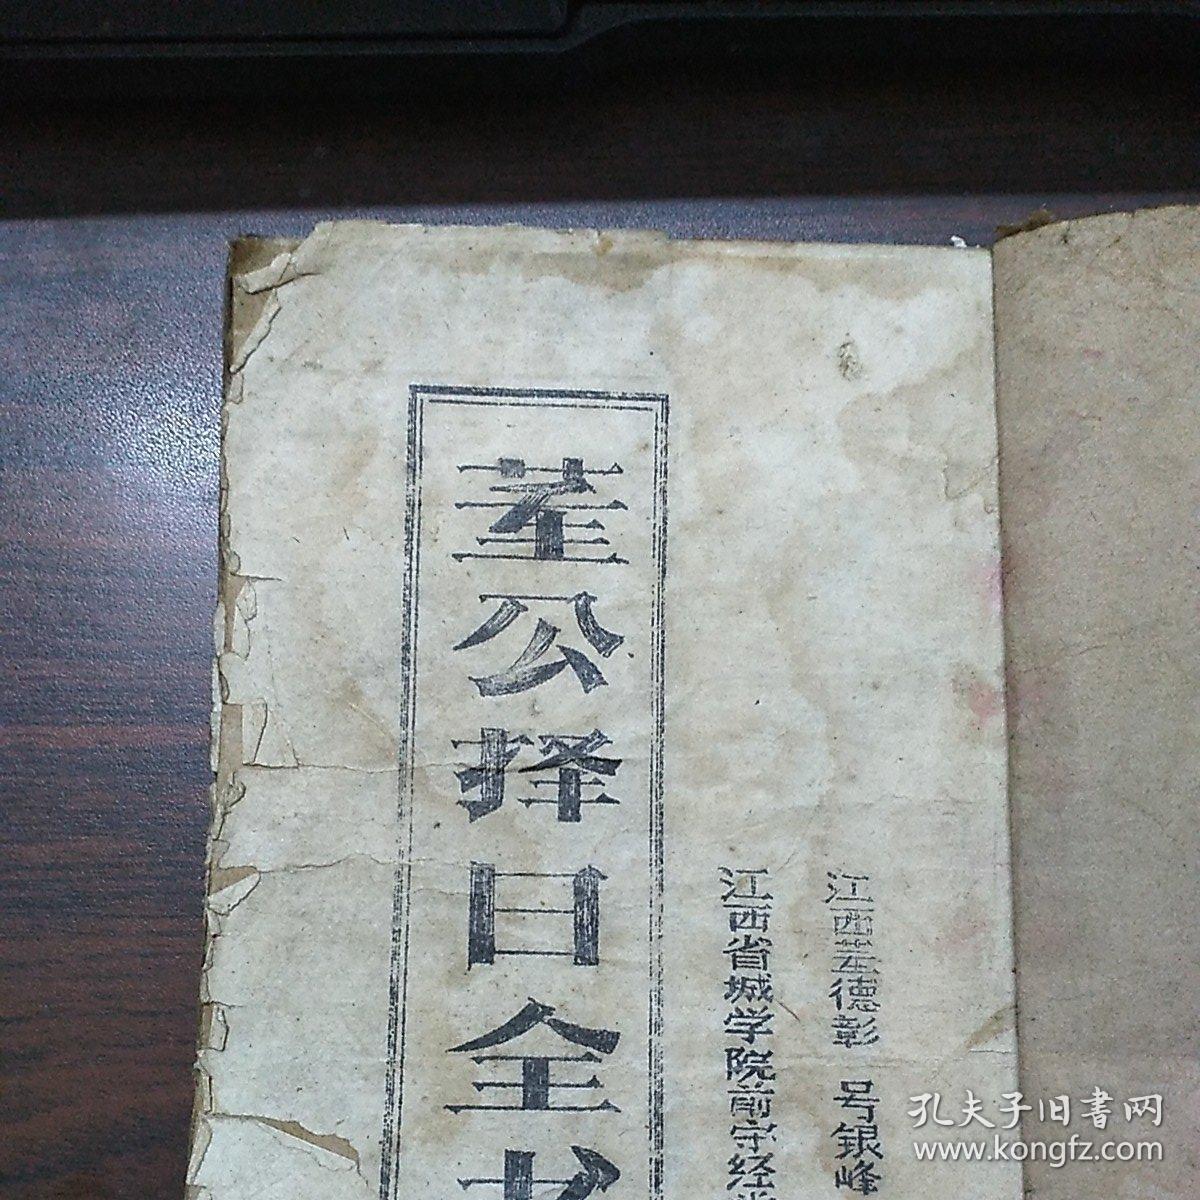 江西董德彰 号银峰
江西省城学院前宗经
董公择日全书
孔夫子旧書网
www.kongfz.com